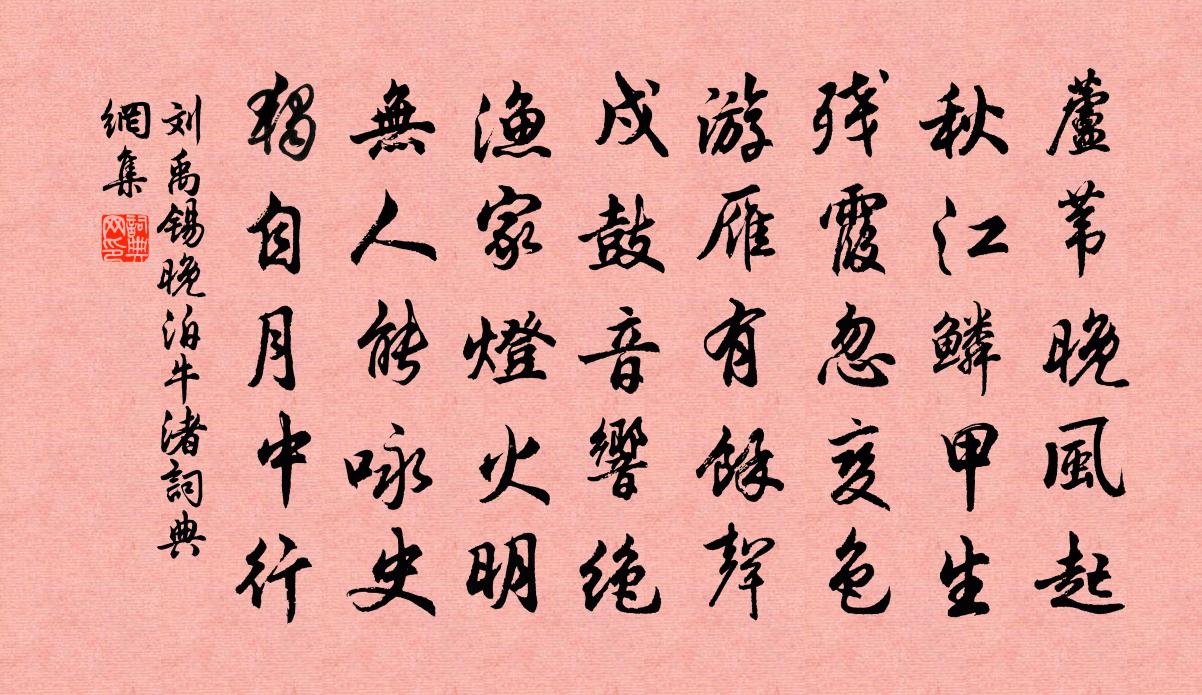 蘆苇晚風起
秋江鱗甲生
残霞忽变色
游雁有餘聲
戍鼓音響绝
漁家燈火明
無人能咏史
獨自月中行
刘禹锡晚泊牛渚詞典
網集
詞典
网印